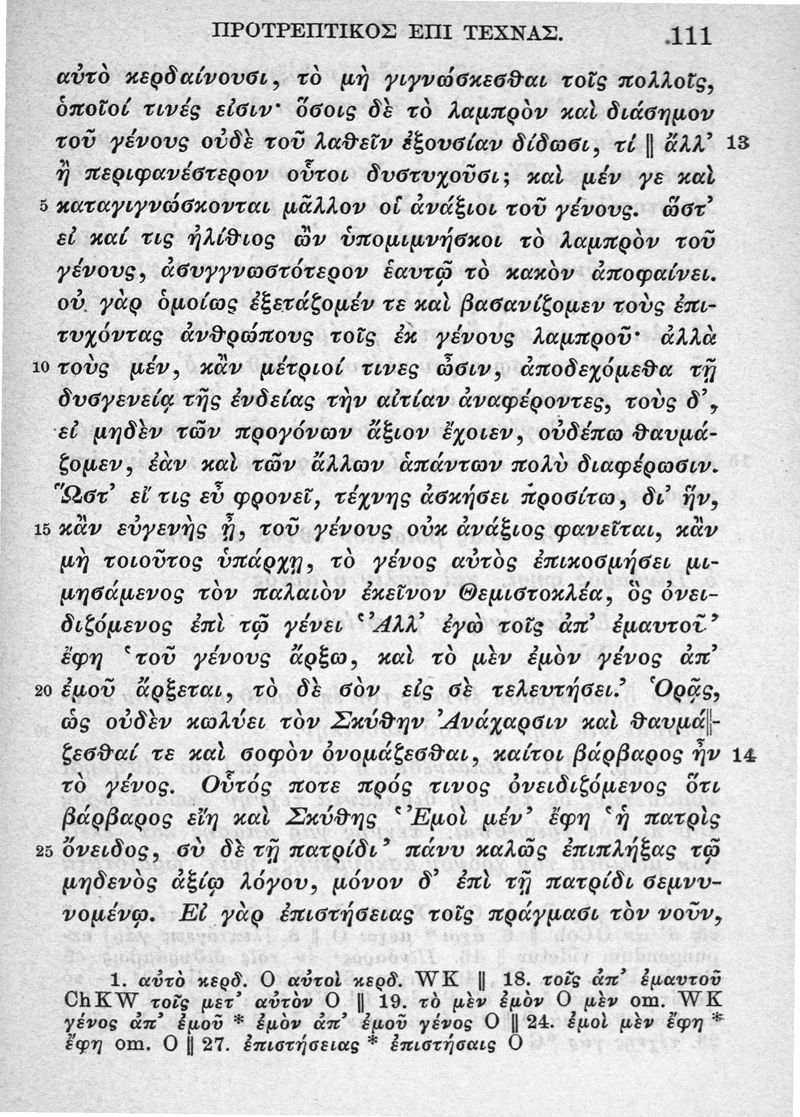 ΠΡΟΤΡΕΠΤΙΚΟΣ ΕΠΙ ΤΕΧΝΑΣ. 111
αὐτὸ κερδαίνουσι, τὸ μὴ γιγνώσκεσθαι τοῖς πολλοῖς,
ὁποῖοί τινές εἰσιν· ὅσοις δὲ τὸ λαμπρὸν καὶ διάσημον
τοῦ γένους οὐδὲ τοῦ λαθεῖν ἐξουσίαν δίδωσι, τί ‖ ἄλλ’ 13
ἢ περιφανέστερον οὗτοι δυστυχοῦσι; καὶ μέν γε καὶ
5 καταγιγνώσκονται μᾶλλον οἱ ἀνάξιοι τοῦ γένους. ὥστ’
εἰ καί τις ἠλίθιος ὢν ὑπομιμνήσκοι τὸ λαμπρὸν τοῦ
γένους, ἀσυγγνωστότερον ἑαυτῷ τὸ κακὸν ἀποφαίνει.
οὐ γὰρ ὁμοίως ἐξετάζομέν τε καὶ βασανίζομεν τοὺς ἐπι-
τυχόντας ἀνθρώπους τοῖς ἐκ γένους λαμπροῦ· ἀλλὰ
10 τοὺς μέν, κἂν μέτριοί τινες ὦσιν, ἀποδεχόμεθα τῇ
δυσγενείᾳ τῆς ἐνδείας τὴν αἰτίαν ἀναφέροντες, τοὺς δ’,
εἰ μηδὲν τῶν προγόνων ἄξιον ἔχοιεν, οὐδέπω θαυμά-
ζομεν, ἐὰν καὶ τῶν ἄλλων ἁπάντων πολὺ διαφέρωσιν.
Ὥστ’ εἴ τις εὖ φρονεῖ, τέχνης ἀσκήσει προσίτω, δι’ ἥν,
15 κἂν εὐγενὴς ᾖ, τοῦ γένους οὐκ ἀνάξιος φανεῖται, κἂν
μὴ τοιοῦτος ὑπάρχῃ, τὸ γένος αὐτὸς ἐπικοσμήσει μι-
μησάμενος τὸν παλαιὸν ἐκεῖνον Θεμιστοκλέα, ὃς ὀνει-
διζόμενος ἐπὶ τῷ γένει ‘Ἀλλ’ ἐγὼ τοῖς ἀπ’ ἐμαυτοῦ’
ἔφη ‘τοῦ γένους ἄρξω, καὶ τὸ μὲν ἐμὸν γένος ἀπ’
20 ἐμοῦ ἄρξεται, τὸ δὲ σὸν εἰς σὲ τελευτήσει.’ Ὁρᾷς,
ὡς οὐδὲν κωλύει τὸν Σκύθην Ἀνάχαρσιν καὶ θαυμά‖-
ζεσθαί τε καὶ σοφὸν ὀνομάζεσθαι, καίτοι βάρβαρος ἦν 14
τὸ γένος. Οὗτός ποτε πρός τινος ὀνειδιζόμενος ὅτι
βάρβαρος εἴη καὶ Σκύθης ‘Ἐμοὶ μέν’ ἔφη ‘ἡ πατρὶς
25 ὄνειδος, σὺ δὲ τῇ πατρίδι’ πάνυ καλῶς ἐπιπλήξας τῷ
μηδενὸς ἀξίῳ λόγου, μόνον δ’ ἐπὶ τῇ πατρίδι σεμνυ-
νομένῳ. Εἰ γὰρ ἐπιστήσειας τοῖς πράγμασι τὸν νοῦν,
1. αὐτὸ κερδ. O αὐτοὶ κερδ. WK ‖ 18. τοῖς ἀπ’ ἐμαυτοῦ
ChKW τοῖς μετ’ αὐτὸν O ‖ 19. τὸ μὲν ἐμὸν O μὲν om. WK
γένος ἀπ’ ἐμοῦ * ἐμὸν ἀπ’ ἐμοῦ γένος O ‖ 24. ἐμοὶ μὲν ἔφη *
ἔφη om. O ‖ 27. ἐπιστήσειας * ἐπιστήσαις O